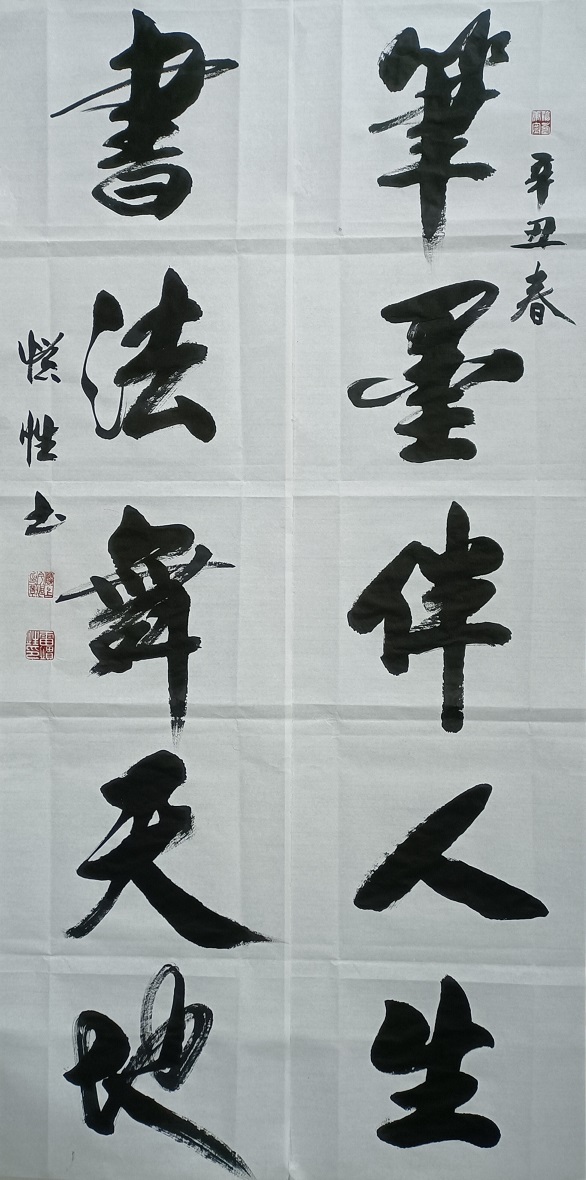 辛丑春
筆墨伴人生
書法舞天地
慎性书